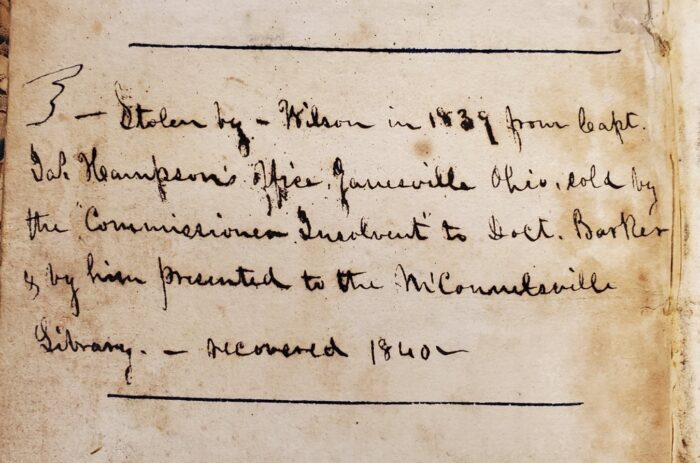 3 — Stolen by — Wilson in 1839 from Capt.
Jas Hampson's office, Zanesville Ohio, sold by
the "Commissioner Insolvent" to Doct. Barker
& by him presented to the McConnelsville
Library. — recovered 1840 —